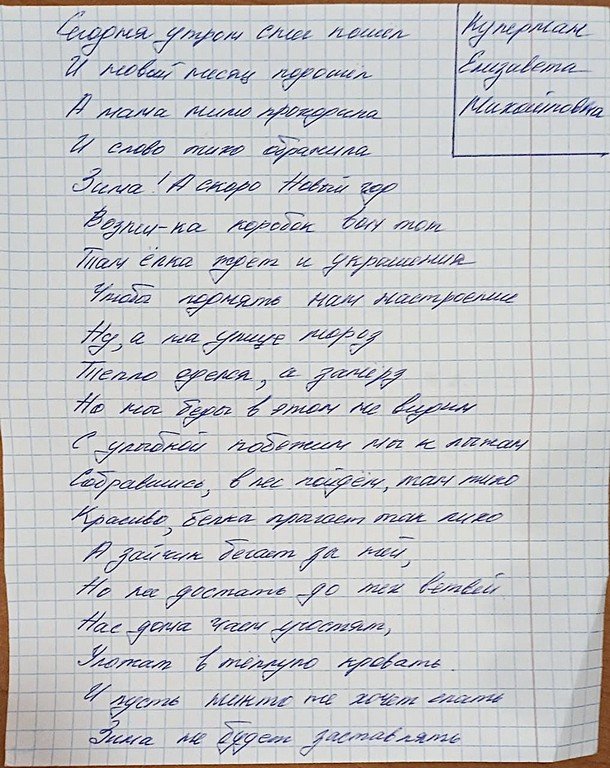 Сегодня утром снег пошёл
И новый месяц подошёл
А мама мимо проходила
И слово тихо обранила
Зима! А скоро Новый год
Возьми-ка коробок вон тот
Там ёлка ждет и украшения
Чтобы поднять нам настроение
Ну, а на улице мороз
Тепло оделся, а замерз
Но мы беды в этом не видим
С улыбкой побежим мы к лыжам
Собравшись, в лес пойдём, там тихо
Красиво, белка прыгает так лихо
А зайчик бегает за ней,
Но не достать до тех ветвей.
Нас дома чаем угостят,
Уложат в тёплую кровать.
И пусть никто не хочет спать
Зима не будет заставлять
Куперман
Елизавета
Михайловна